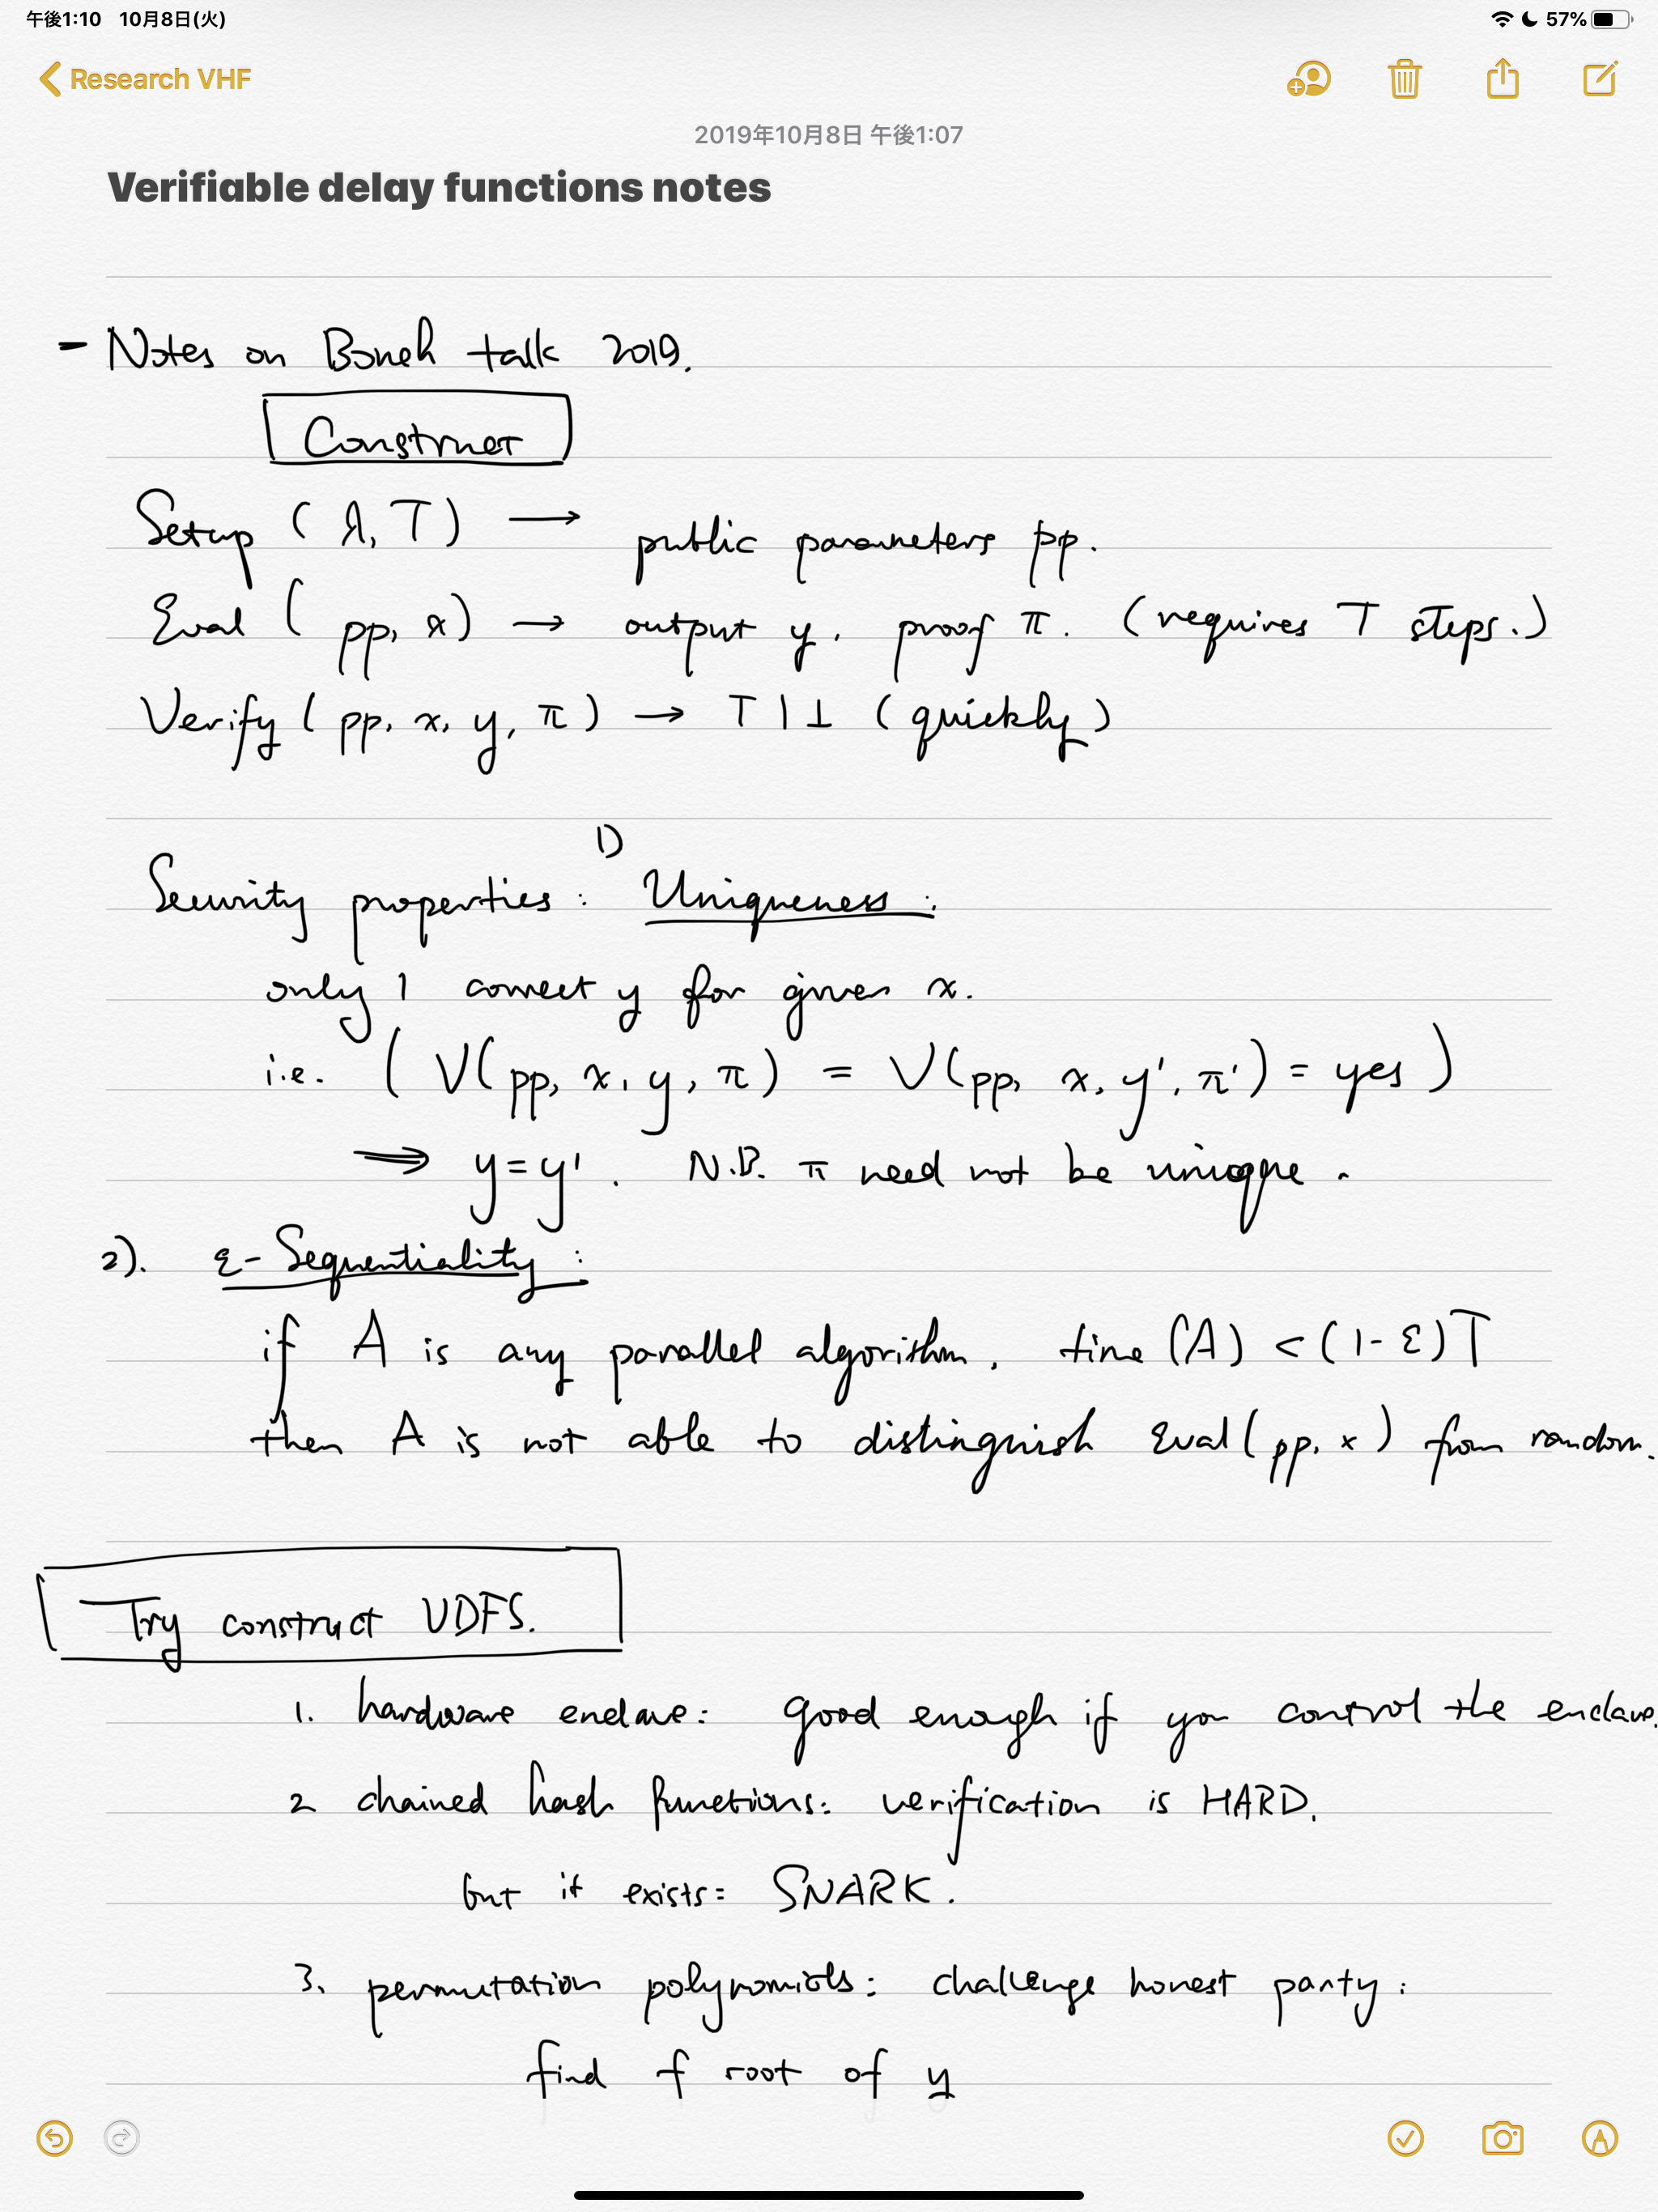 午後1:10 10月8日(火)
57%
Research VHF
2019年10月8日 午後1:07
Verifiable delay functions notes
- Notes on Boneh talk 2019.
Construct
Setup (λ, T) → public parameters pp.
Eval (pp, x) → output y, proof π. (requires T steps.)
Verify (pp, x, y, π) → T | ⊥ (quickly)
Security properties: 1) Uniqueness:
only 1 correct y for given x.
i.e. (V(pp, x, y, π) = V(pp, x, y', π') = yes)
⇒ y = y'. N.B. π need not be unique.
2). ε-Sequentiality:
if A is any parallel algorithm, time (A) < (1-ε)T
then A is not able to distinguish Eval(pp, x) from random.
Try construct VDFS.
1. hardware enclave: good enough if you control the enclave.
2 chained hash functions: verification is HARD.
but it exists: SNARK.
3. permutation polynomials: challenge honest party:
find f root of y